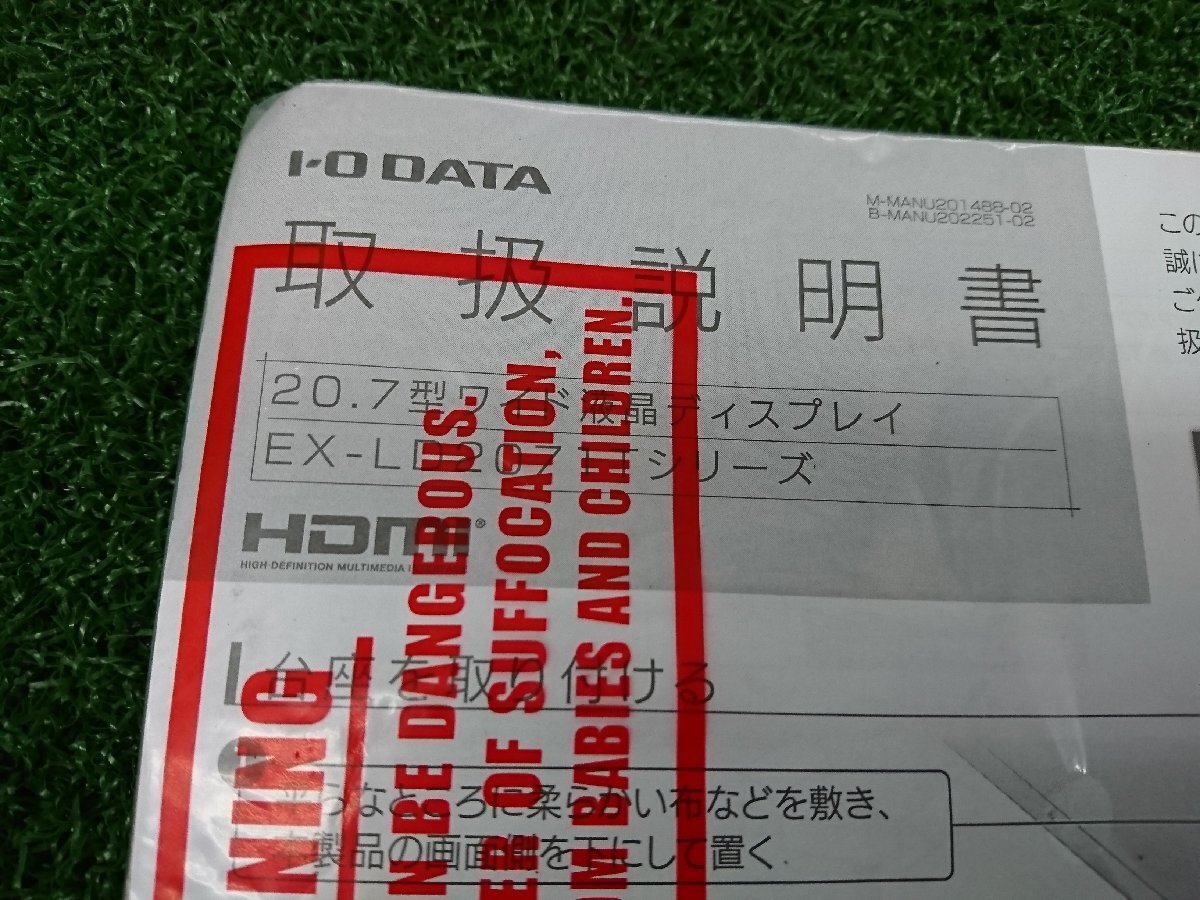 I-O DATA
M-MANU201488-02
B-MANU202251-02
取扱説明書
20.7型ワイド液晶ディスプレイ
EX-LD2071Tシリーズ
HDMI®
HIGH-DEFINITION MULTIMEDIA
台座を取り付ける
平らなところに柔らかい布などを敷き、
本製品の画面側を下にして置く
この
誠に
ご
扱
NING
N BE DANGEROUS.
ER OF SUFFOCATION,
OM BABIES AND CHILDREN.